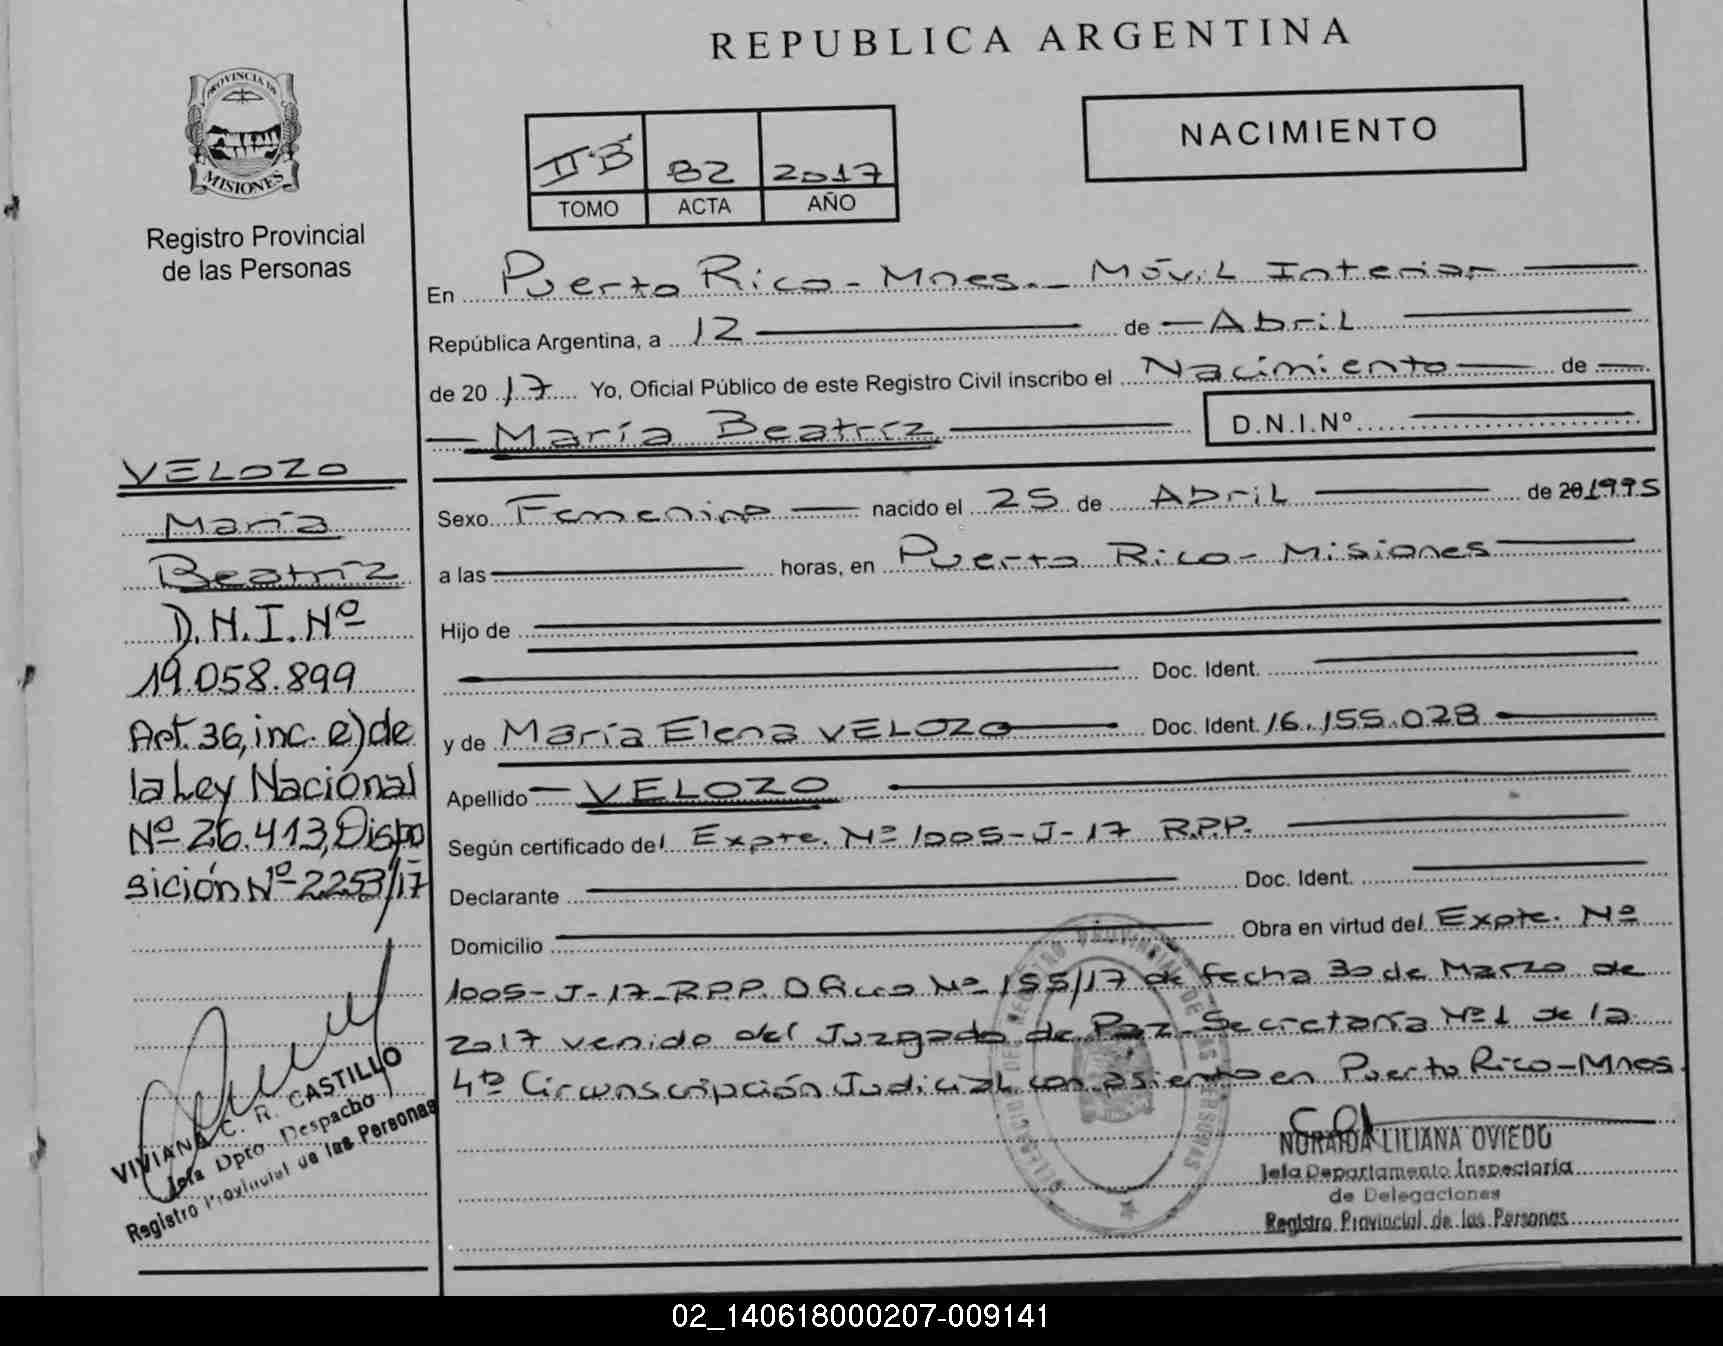 REPUBLICA ARGENTINA
PROVINCIA DE
MISIONES
Registro Provincial
de las Personas
II B
82
2017
TOMO
ACTA
AÑO
NACIMIENTO
En Puerto Rico - Mnes. - Móvil Interior
República Argentina, a 12 de Abril
de 2017 Yo, Oficial Público de este Registro Civil inscribo el Nacimiento de
María Beatríz
D.N.I.Nº
VELOZO
María
Beatríz
D.N.I. Nº
19.058.899
Art. 36, inc. e) de
la Ley Nacional
Nº 26.413, Dispo
sición Nº 2253/17
Sexo Femenino nacido el 25 de Abril de 201995
a las horas, en Puerto Rico - Misiones
Hijo de
Doc. Ident.
y de María Elena VELOZO Doc. Ident. 16.155.028
Apellido VELOZO
Según certificado del Expte. Nº 1005-J-17 R.P.P.
Declarante Doc. Ident.
Domicilio Obra en virtud del Expte. Nº
1005-J-17-R.P.P. Nº 155/17 de fecha 30 de Marzo de
2017 venido del Juzgado de Paz Secretaría Nº 1 de la
4ta Circunscripción Judicial con asiento en Puerto Rico-Mnes.
VIVIANA C. R. CASTILLO
Jefa Dpto Despacho
Registro Provincial de las Personas
NORAIDA LILIANA OVIEDO
Jefa Departamento Inspectoria
de Delegaciones
Registro Provincial de las Personas
02_140618000207-009141